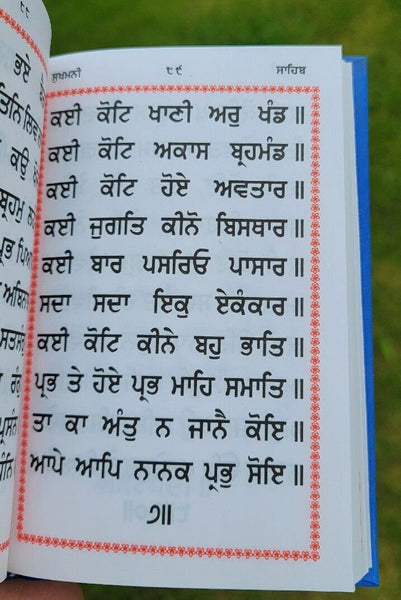 ਸੁਖਮਨੀ ੮੯ ਸਾਹਿਬ
ਕਈ ਕੋਟਿ ਖਾਣੀ ਅਰੁ ਖੰਡ ॥
ਕਈ ਕੋਟਿ ਅਕਾਸ ਬ੍ਰਹਮੰਡ ॥
ਕਈ ਕੋਟਿ ਹੋਏ ਅਵਤਾਰ ॥
ਕਈ ਜੁਗਤਿ ਕੀਨੋ ਬਿਸਥਾਰ ॥
ਕਈ ਬਾਰ ਪਸਰਿਓ ਪਾਸਾਰ ॥
ਸਦਾ ਸਦਾ ਇਕੁ ਏਕੰਕਾਰ ॥
ਕਈ ਕੋਟਿ ਕੀਨੇ ਬਹੁ ਭਾਤਿ ॥
ਪ੍ਰਭ ਤੇ ਹੋਏ ਪ੍ਰਭ ਮਾਹਿ ਸਮਾਤਿ ॥
ਤਾ ਕਾ ਅੰਤੁ ਨ ਜਾਨੈ ਕੋਇ ॥
ਆਪੇ ਆਪਿ ਨਾਨਕ ਪ੍ਰਭੁ ਸੋਇ ॥
੭॥